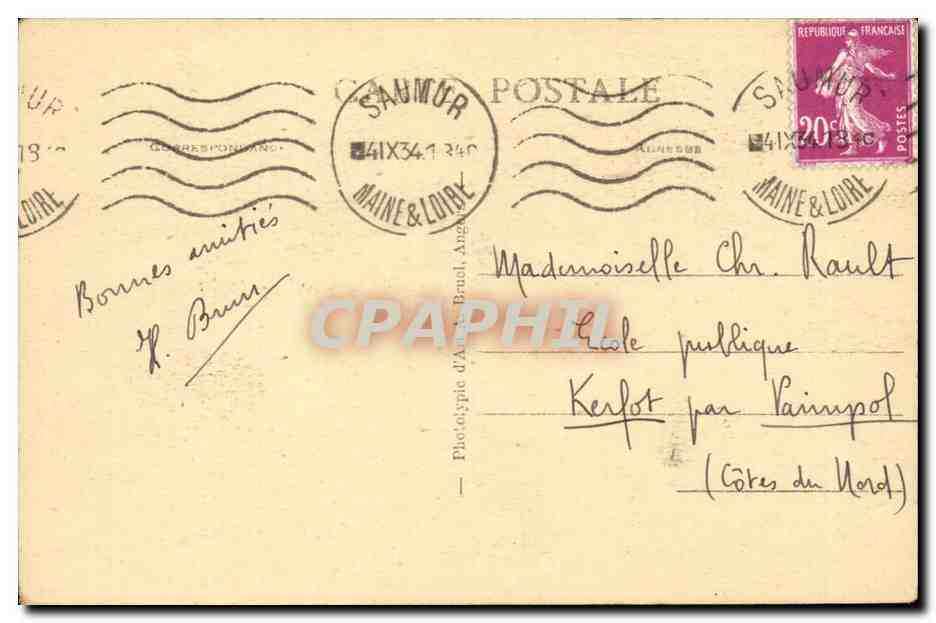 CARTE POSTALE
CORRESPONDANCE
ADRESSE
SAUMUR
4 IX 34
MAINE & LOIRE
SAUMUR
4 IX 34
MAINE & LOIRE
REPUBLIQUE FRANCAISE
20c
POSTES
URI
LOIRE
Bonnes amitiés
H. Brun
Mademoiselle Chr. Rault
Ecole publique
Kerfot par Paimpol
(Côtes du Nord)
Phototypie d'Art Bruel, Angers
CPAPHIL